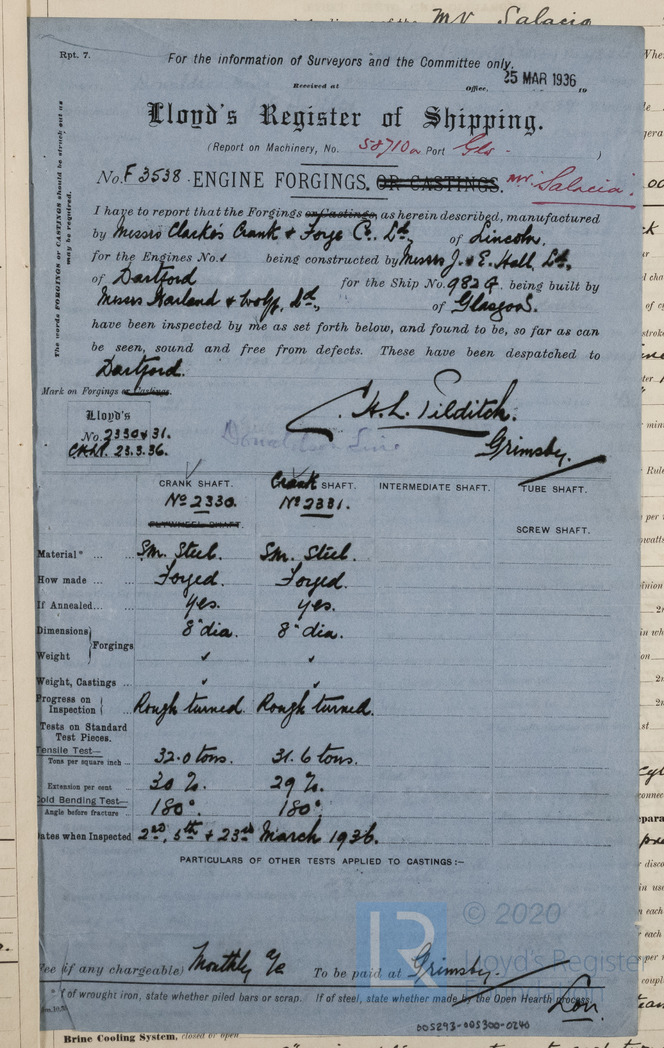 MV Salacia
Rpt. 7.
For the information of Surveyors and the Committee only.
Received at Office, 25 MAR 1936 19
Lloyd's Register of Shipping.
(Report on Machinery, No. 58710a Port Gls - )
No. F 3538 ENGINE FORGINGS. OR CASTINGS. MV "Salacia".
The words FORGINGS or CASTINGS should be struck out as
may be required.
I have to report that the Forgings or Castings, as herein described, manufactured
by Messrs Clarke's Crank & Forge Co. Ld, of Lincoln,
for the Engines No. being constructed by Messrs J. & E. Hall, Ld,
of Dartford for the Ship No. 982 G. being built by
Messrs Harland & Wolff, Ld, of Glasgow.
have been inspected by me as set forth below, and found to be, so far as can
be seen, sound and free from defects. These have been despatched to
Dartford.
Mark on Forgings or Castings.
Lloyd's
No. 2330 & 31.
CHLP. 23.3.36.
Donaldson Line
C. H. L. Pilditch.
Grimsby.
CRANK SHAFT. Crank SHAFT. INTERMEDIATE SHAFT. TUBE SHAFT.
No 2330. No 2331.
FLYWHEEL SHAFT. SCREW SHAFT.
Material* ... ... SM. Steel. SM. Steel.
How made ... ... Forged. Forged.
If Annealed... ... Yes. Yes.
Dimensions 8" dia. 8" dia.
Forgings
Weight
Weight, Castings ...
Progress on
Inspection ... Rough turned. Rough turned.
Tests on Standard
Test Pieces.
Tensile Test—
Tons per square inch ... 32.0 tons. 31.6 tons.
Extension per cent 30 %. 29 %.
Cold Bending Test—
Angle before fracture ... 180°. 180°.
Dates when Inspected 2nd, 5th & 23rd March 1936.
PARTICULARS OF OTHER TESTS APPLIED TO CASTINGS:—
© 2020
LR Lloyd's Register
Foundation
Fee (if any chargeable) Monthly a/c To be paid at Grimsby.
* If of wrought iron, state whether piled bars or scrap. If of steel, state whether made by the Open Hearth process.
Lon.
005293-005300-0240
Brine Cooling System, closed or open